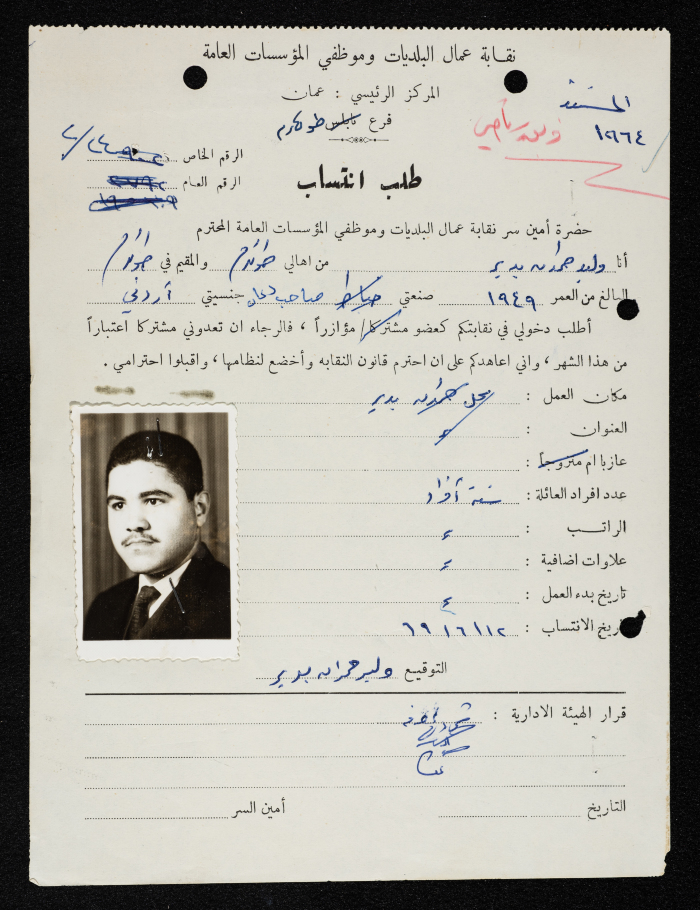 نقابة عمال البلديات وموظفي المؤسسات العامة
المركز الرئيسي : عمان
فرع نابلس طولكرم
١٢٦٦٤
الرقم الخاص
الرقم العام
طلب انتساب
حضرة أمين سر نقابة عمال البلديات وموظفي المؤسسات العامة المحترم
أنا وليد حمدان بدير من اهالي طولكرم والمقيم في طولكرم
البالغ من العمر ١٩٤٩ صنعتي خياط صاحب جنسيتي أردني
أطلب دخولي في نقابتكم كعضو مشتركا/ مؤازراً ، فالرجاء ان تعدوني مشتركا اعتباراً
من هذا الشهر ، واني اعاهدكم على ان احترم قانون النقابه وأخضع لنظامها ، واقبلوا احترامي .
مكان العمل : محل حمدان بدير
العنوان :
عازبا ام متزوجاً :
عدد افراد العائلة : أفراد
الراتب :
علاوات اضافية :
تاريخ بدء العمل :
تاريخ الانتساب : ١٢/ ٦/ ٦٩
التوقيع وليد حمدان بدير
قرار الهيئة الادارية :
التاريخ أمين السر